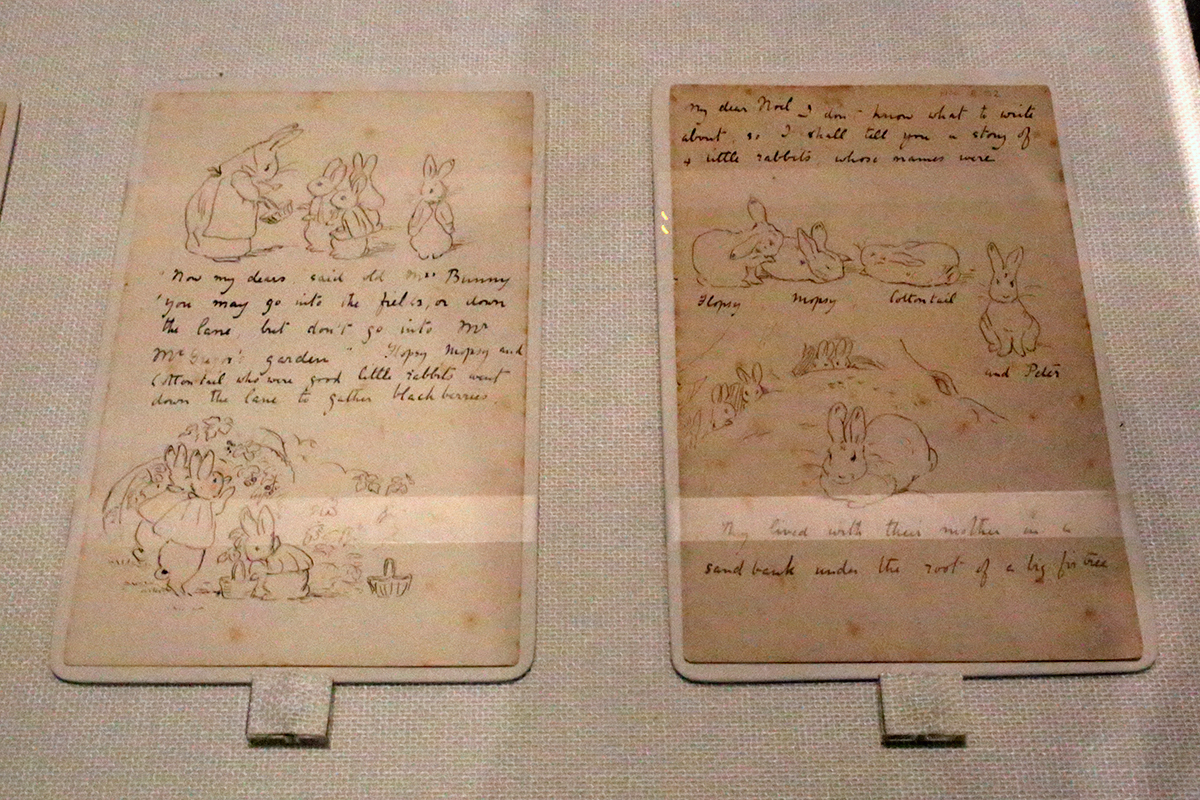 "Now my dears' said old Mrs Bunny
'you may go into the fields, or down
the lane, but don't go into Mr
McGregor's garden" Flopsy Mopsy and
Cottontail who were good little rabbits went
down the lane to gather blackberries.
My dear Noel I don't know what to write
about, so I shall tell you a story of
4 little rabbits, whose names were
Flopsy Mopsy Cottontail
and Peter
They lived with their mother in a
sand bank under the root of a big fir tree